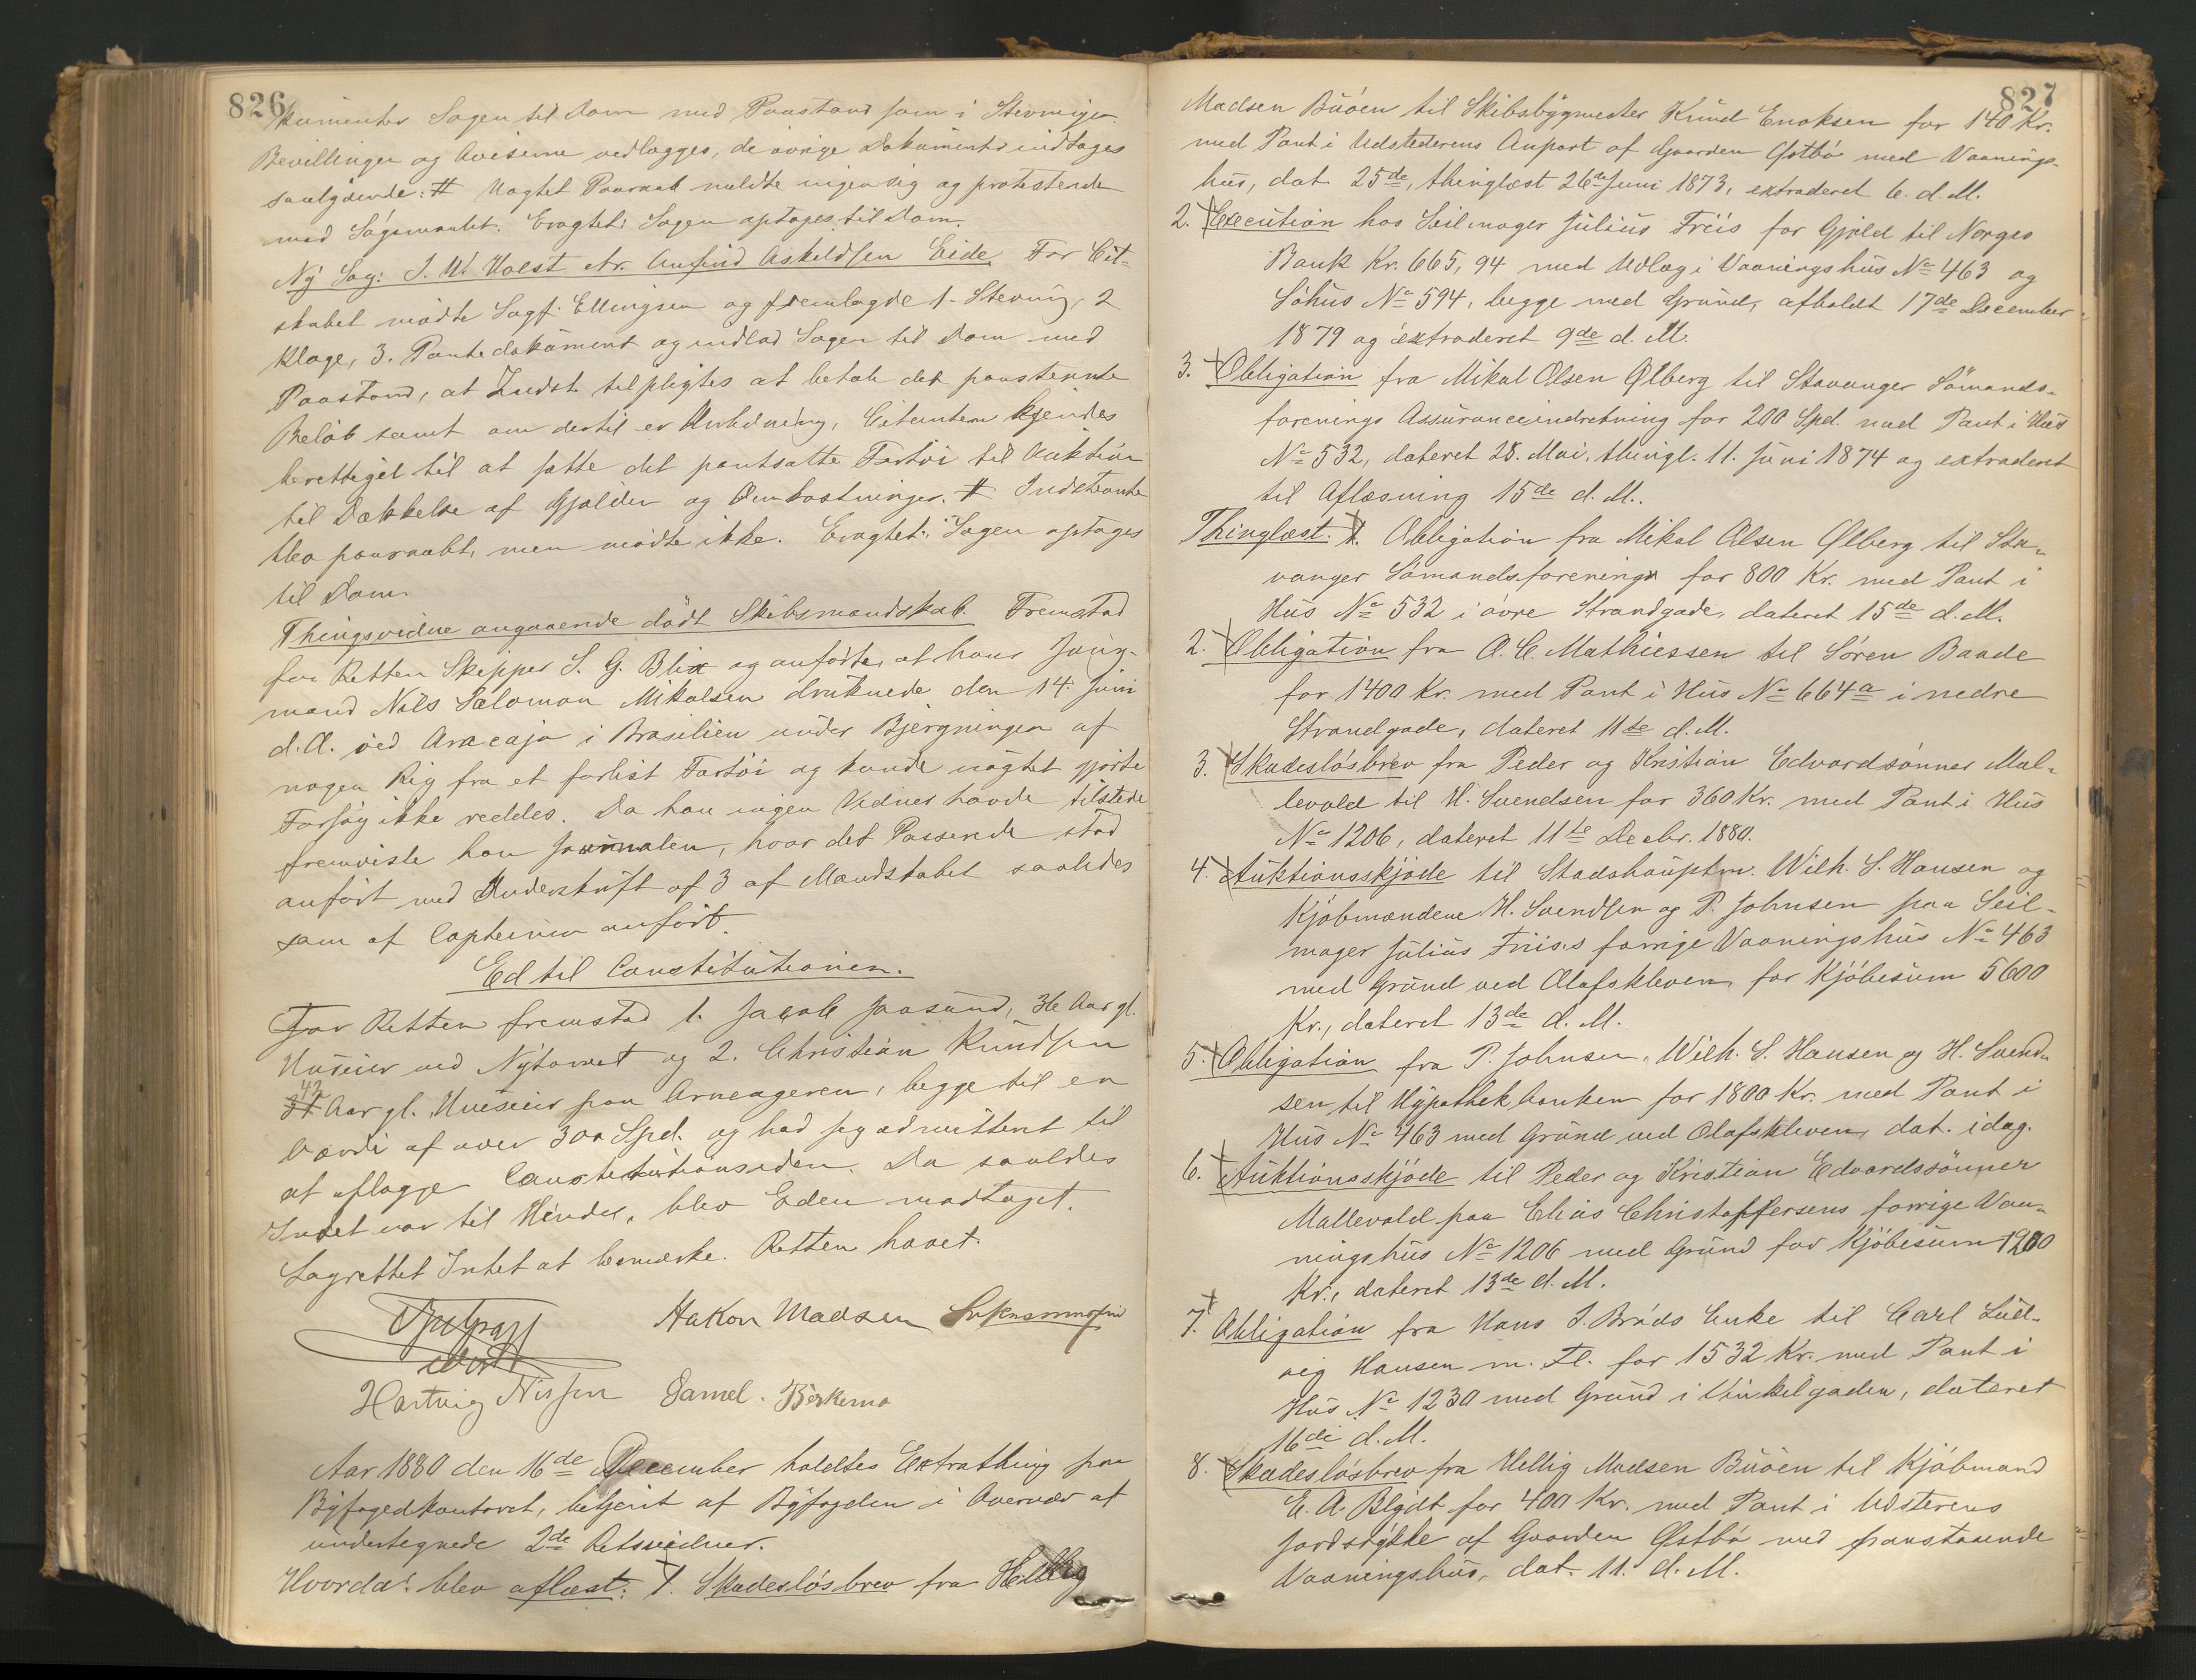 826
kumenter Sagen til Dom med Paastand som i Stevningen.
Bevillingen og Aviserne vedlægges, de øvrige Dokumenter indtages
saalydende: # Uagtet Paaraab meldte ingen sig og protesterede
mod Søgsmaalet. Eragtet: Sagen optages til Dom.
Ny Sag: J. W. Holst ctr. Anfind Askildsen Eide. For Cit-
skabet mødte Sagf. Ellingsen og fremlagde 1. Stevning, 2
Klage, 3. Pantedokument og indlod Sagen til Dom med
Paastand, at Indst. tilpligtes at betale det paastevnte
Beløb samt om dertil er Anledning, Citanten kjendes
berettiget til at sætte det pantsatte Fartøi til Auktion
til Dækkelse af Gjælden og Omkostninger. # Indstevnte
blev paaraabt, men mødte ikke. Eragtet: Sagen optages
til Dom.
Thingsvidne angaaende dødt Skibsmandskab. Fremstod
for Retten Skipper S. G. Blix og anførte, at hans Jung-
mand Nils Salomon Mikalsen druknede den 14. Juni
d.A. ved Aracaja i Brasilien under Bjergningen af
nogen Rig fra et forlist Fartøi og kunde uagtet gjorte
Forsøg ikke reddes. Da han ingen Vidner havde tilstede
fremviste han Journalen, hvor det Passerede stod
anført med Underskrift af 3 af Mandskabet saaledes
som af Capteinen anført.
Ed til Constitutionen.
For Retten fremstod 1. Jacob Jaasund, 36 Aar gl.
Huseier ved Nytorvet og 2. Christian Knudsen
42
31 Aar gl. Huseier paa Arneageren, begge til en
Værdi af over 300 Spd. og bad sig admitteret til
at aflægge Constitutionseden. Da saaledes
Intet var til Hinder, blev Eden modtaget.
Lagrettet Intet at bemærke. Retten hævet.
Hakon Madsen
Hartvig Nissen
Aar 1880 den 16de December holdtes Extrathing paa
Byfogedkontoret, betjent af Byfogden i Overvær af
undertegnede 2de Retsvidner.
Hvorda: blev aflæst: 1. Skadesløsbrev fra Hellig
827
Madsen Buøen til Skibsbygmester Knud Enoksen for 140 Kr.
med Pant i Udstederens Anpart af Gaarden Østbø med Vaanings-
hus, dat 25de, thinglæst 26de Juni 1873, extraderet 6. d. M.
2. Execution hos Seilmager Julius Friis for Gjæld til Norges
Bank Kr. 665,94 med Udlæg i Vaaningshus No 463 og
Søhus No 594, begge med Grund, afholdt 17de December
1879 og extraderet 9de d. M.
3. Obligation fra Mikal Olsen Ølberg til Stavanger Sømands-
forenings Assuranceindretning for 200 Spd. med Pant i Hus
No 532, dateret 28. Mai, thingl. 11. Juni 1874 og extraderet
til Aflæsning 15de d. M.
Thinglæst: 1. Obligation fra Mikal Olsen Ølberg til Sta-
vanger Sømandsforening for 800 Kr. med Pant i
Hus No 532 i øvre Strandgade, dateret 15de d. M.
2. Obligation fra O. C. Mathiessen til Søren Baade
for 1400 Kr. med Pant i Hus No 664a i nedre
Strandgade, dateret 11te d. M.
3. Skadesløsbrev fra Peder og Kristian Edvardsønner Mal-
levold til H. Svendsen for 360 Kr. med Pant i Hus
No 1206, dateret 11te Decbr. 1880.
4. Auktionsskjøde til Stadshauptm. Wilh. S. Hansen og
Kjøbmændene H. Svendsen og P. Johnsen paa Seil-
mager Julius Friis's forrige Vaaningshus No 463
med Grund ved Olafskleven, for Kjøbesum 5600
Kr., dateret 13de d. M.
5. Obligation fra P. Johnsen, Wilh. S. Hansen og H. Svend-
sen til Hypothekbanken for 1800 Kr. med Pant i
Hus No 463 med Grund ved Olafskleven, dat. idag.
6. Auktionsskjøde til Peder og Kristian Edvardssønner
Mallevold paa Elias Christoffersens forrige Vaa-
ningshus No 1206 med Grund for Kjøbesum 1200
Kr., dateret 13de d. M.
7. Obligation fra Hans J. Brøds Enke til Carl Lud-
vig Hansen m. Fl. for 1532 Kr. med Pant i
Hus No 1230 med Grund i Vinkelgaden, dateret
16de d. M.
8. Skadesløsbrev fra Hellig Madsen Buøen til Kjøbmand
E. A. Blydt for 400 Kr. med Pant i Udsterens
Jordstykke af Gaarden Østbø med paastaaende
Vaaningshus, dat. 11. d. M.